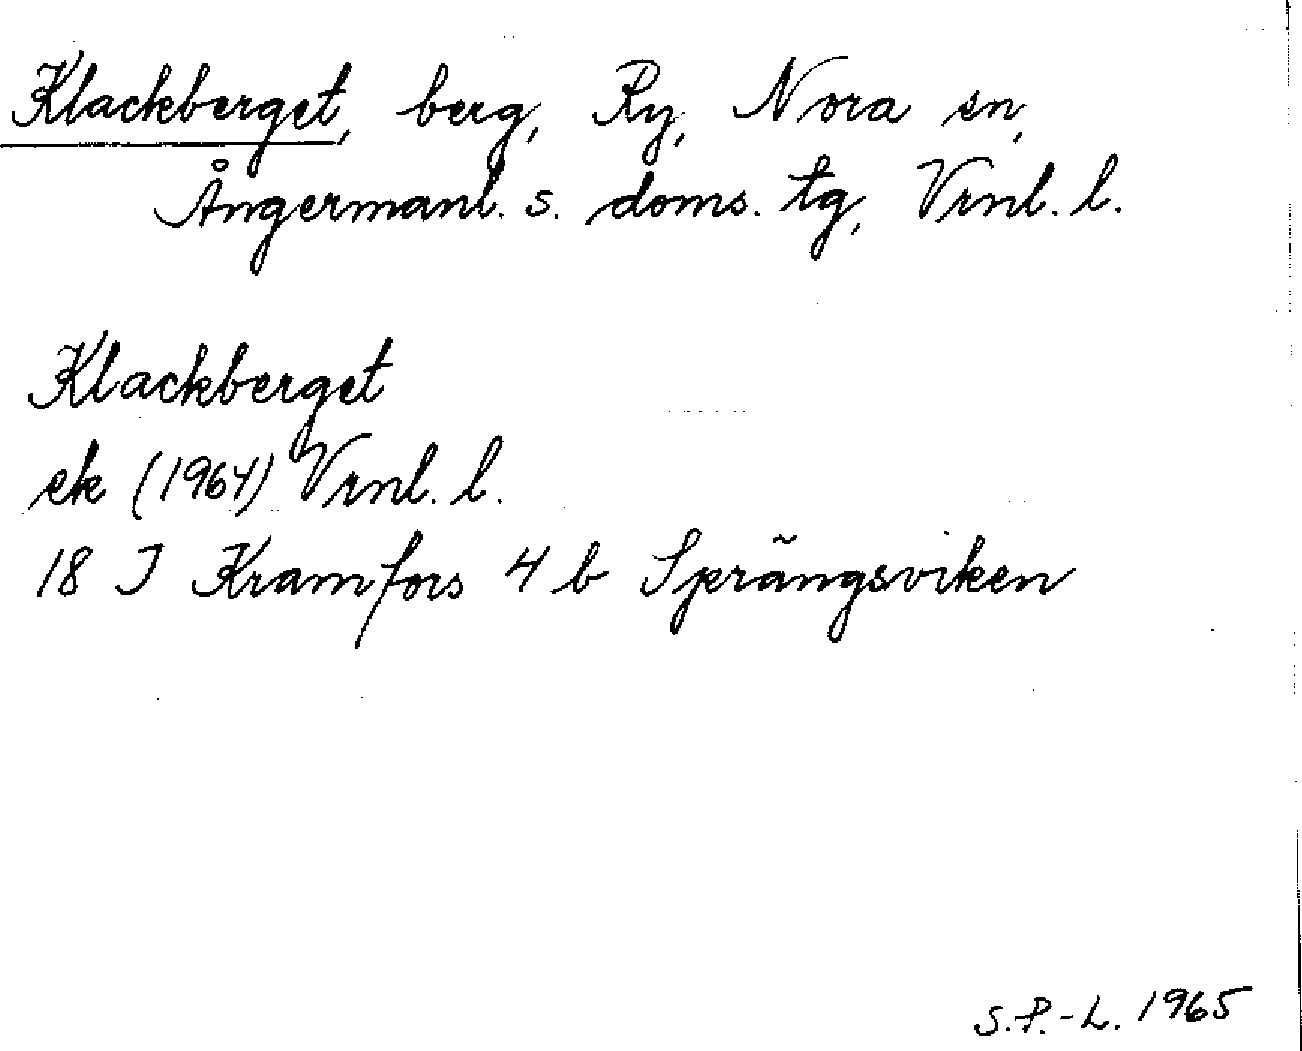 Klackberget, berg, Ry, Nora sn,
Ångermanl. s. doms. tg, Vrnl. l.
Klackberget
ek (1964) Vrnl. l.
18 I Kramfors 4 b Sprängsviken
S.P.-L. 1965